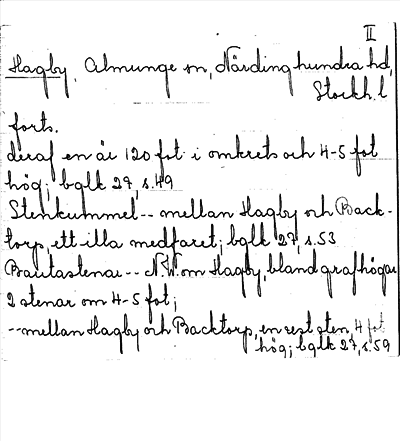 II
Hagby, Almunge sn, Närdinghundra hd,
Stockh. l
forts.
deraf en är 120 fot i omkrets och 4-5 fot
hög; bglk 27, s.49
Stenkummel -- mellan Hagby och Back-
torp, ett illa medfaret; bglk 27, s.53
Bautastenar -- N.W. om Hagby, bland grafhögar
2 stenar om 4-5 fot;
-- mellan Hagby och Backtorp, en rest sten, 4 fot
hög; bglk 27, s.59